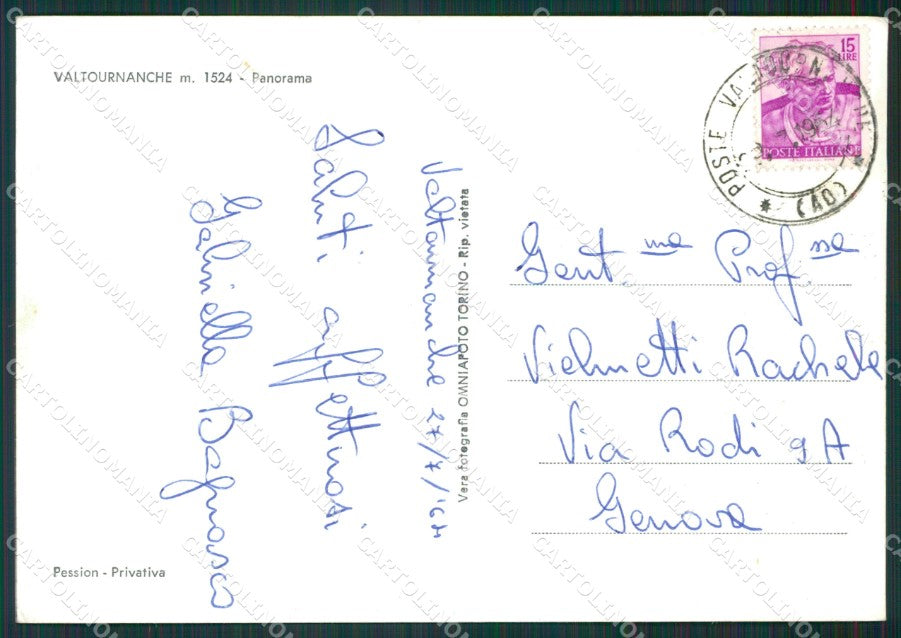 VALTOURNANCHE m. 1524 - Panorama
15
LIRE
POSTE ITALIANE
POSTE VALTOURNANCHE (AO)
1964
Valtournanche 27/7/'64
Saluti affettuosi
Gabriella Bagnasco
Vera fotografia OMNIAFOTO TORINO - Rip. vietata
Gent.ma Prof.ssa
Vielmetti Rachele
Via Rodi 9A
Genova
Pession - Privativa
CARTOLINOMANIA